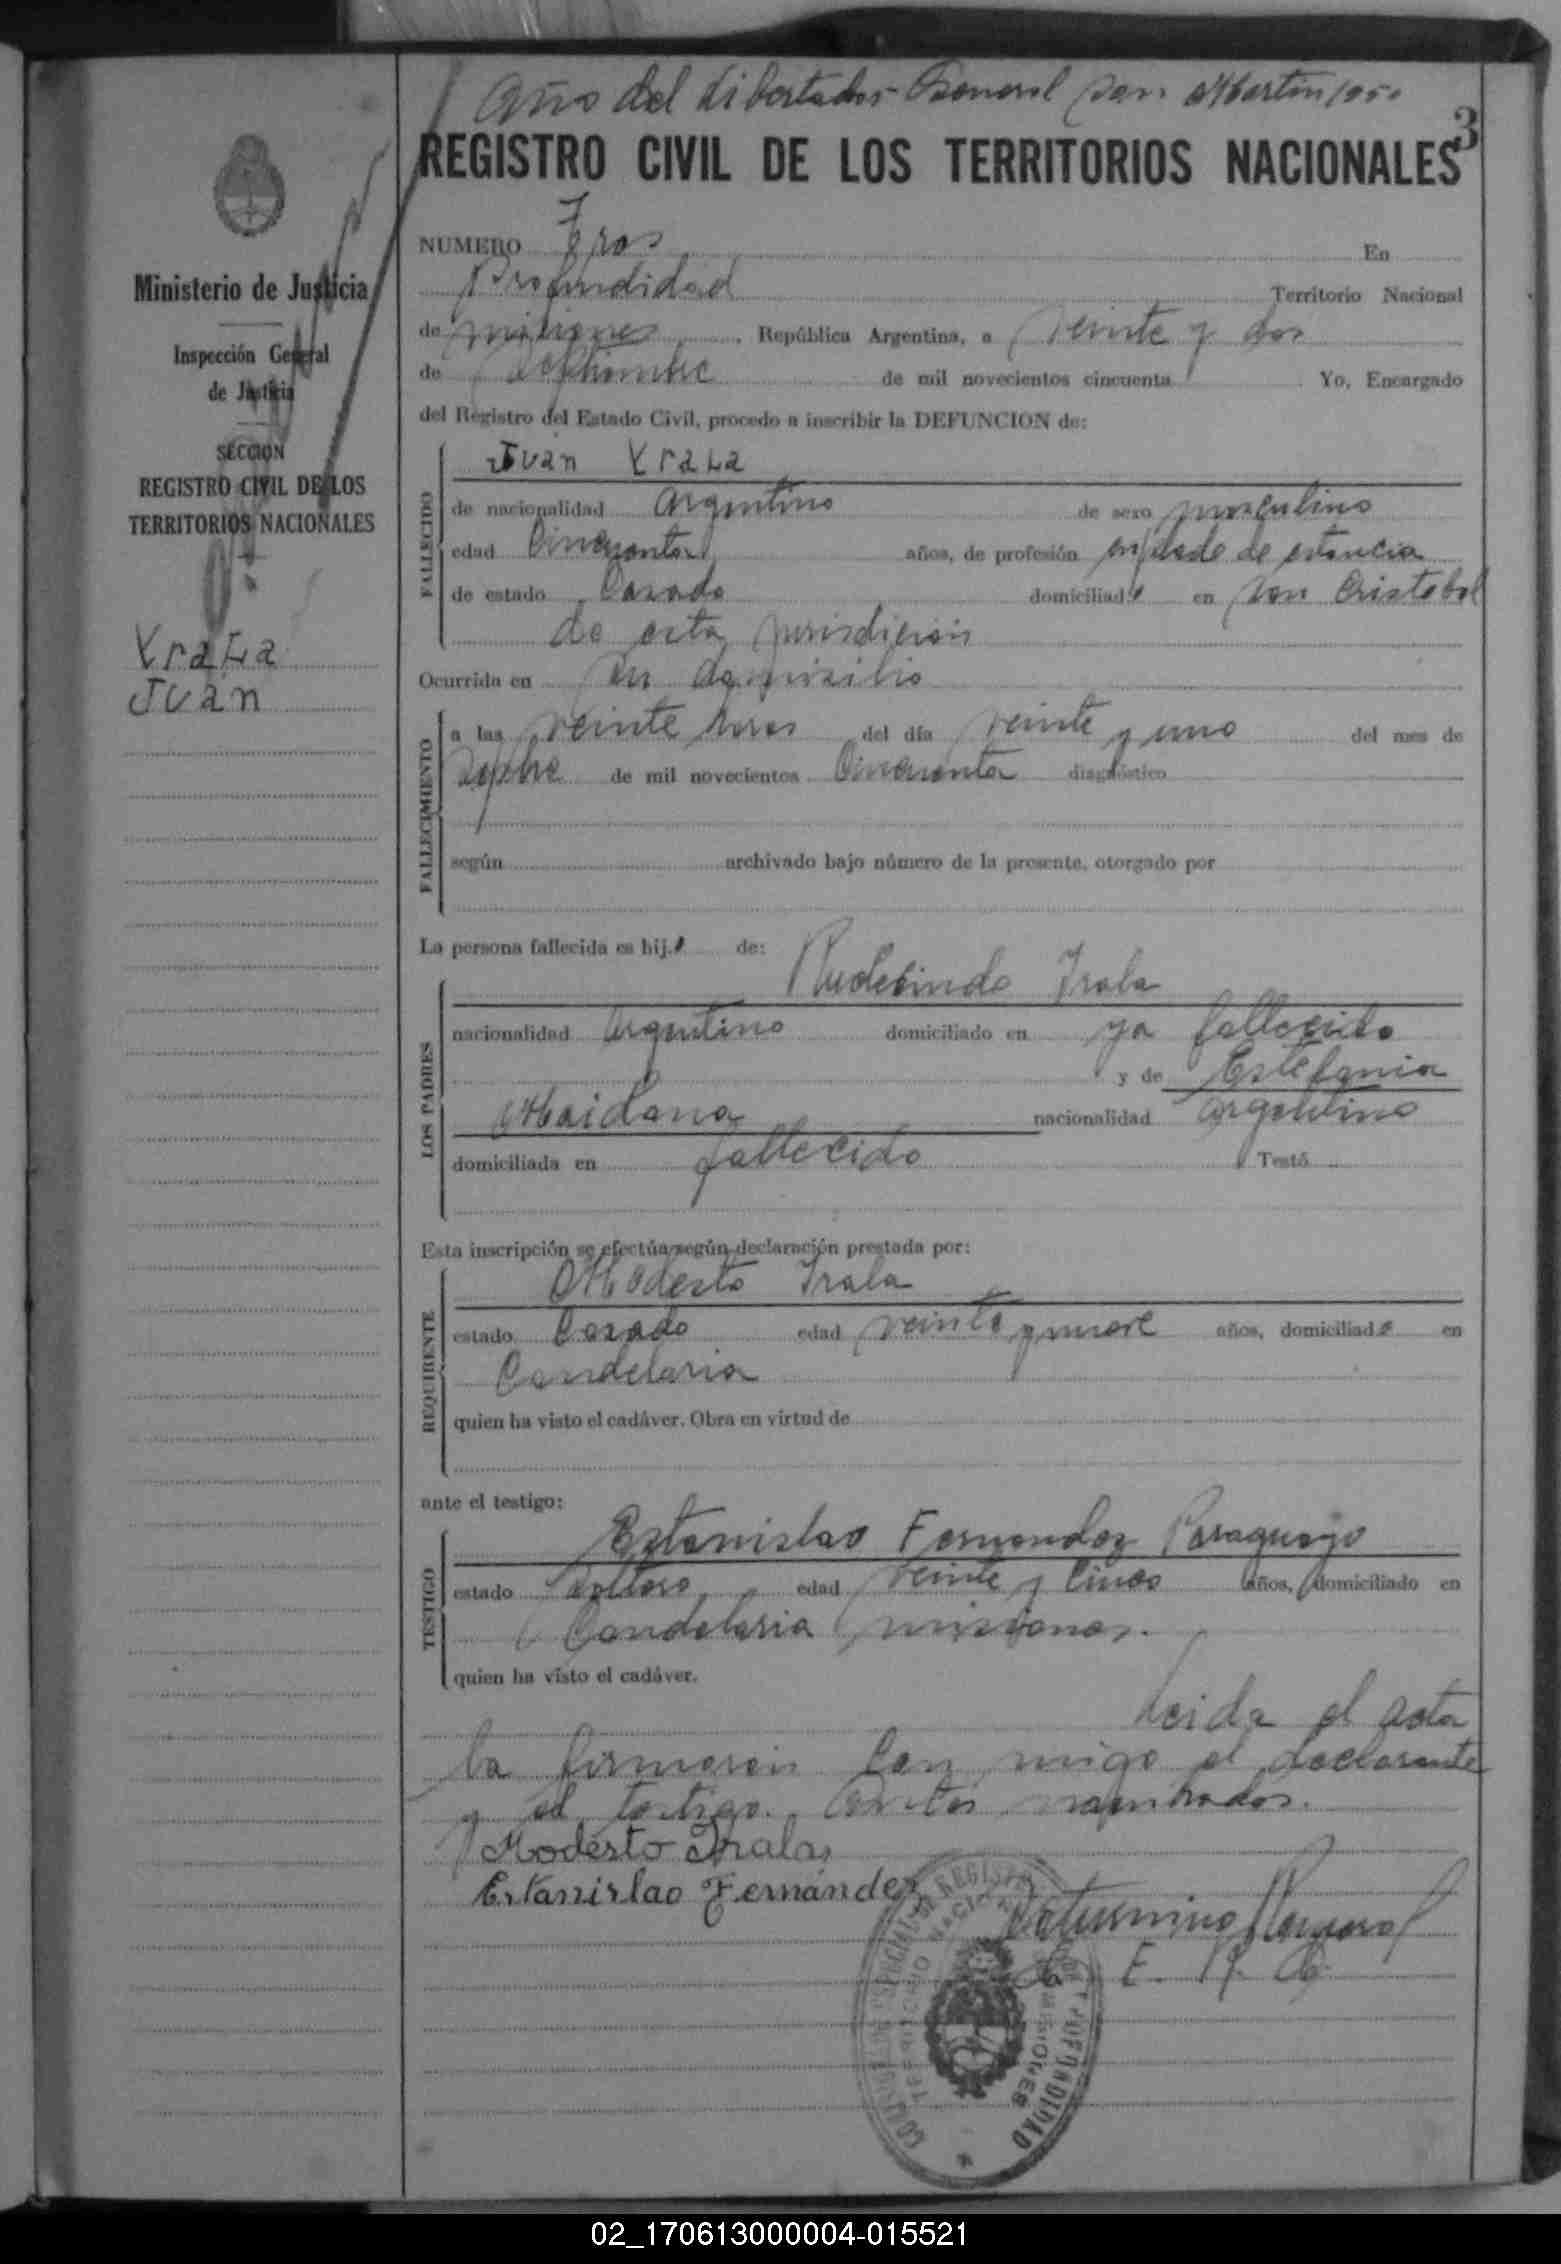 Año del Libertador General San Martin 1950
3
REGISTRO CIVIL DE LOS TERRITORIOS NACIONALES
NUMERO Tres En
Profundidad Territorio Nacional
de misiones, República Argentina, a veinte y dos
de Septiembre de mil novecientos cincuenta Yo, Encargado
del Registro del Estado Civil, procedo a inscribir la DEFUNCION de:
Ministerio de Justicia
Inspección General
de Justicia
SECCION
REGISTRO CIVIL DE LOS
TERRITORIOS NACIONALES
Yrala
Juan
FALLECIDO
Juan Yrala
de nacionalidad argentino de sexo masculino
edad Cincuenta años, de profesión empleado de estancia
de estado Casado domiciliado en San Cristobal
de esta jurisdicion
Ocurrida en su domisilio
FALLECIMIENTO
a las veinte horas del día veinte y uno del mes de
Sepbre de mil novecientos Cincuenta diagnóstico
según archivado bajo número de la presente, otorgado por
La persona fallecida es hijo de:
LOS PADRES
Rudecindo Irala
nacionalidad argentino domiciliado en ya fallecido
y de Estefania
Maidana nacionalidad argentino
domiciliada en fallecido Testó
Esta inscripción se efectúa según declaración prestada por:
REQUIRENTE
Modesto Irala
estado Casado edad veinte y nueve años, domiciliado en
Candelaria
quien ha visto el cadáver. Obra en virtud de
ante el testigo:
TESTIGO
Estanislao Fernandez Paraguayo
estado soltero edad veinte y Cinco años, domiciliado en
Candelaria misiones.
quien ha visto el cadáver.
Leida el acta
la firmaron Con migo el declarante
y el testigo. nombrados.
Modesto Irala
Estanislao Fernández
Saturnino
E. R. C.
TERRITORIO NACIONAL MISIONES
PROFUNDIDAD
02_170613000004-015521